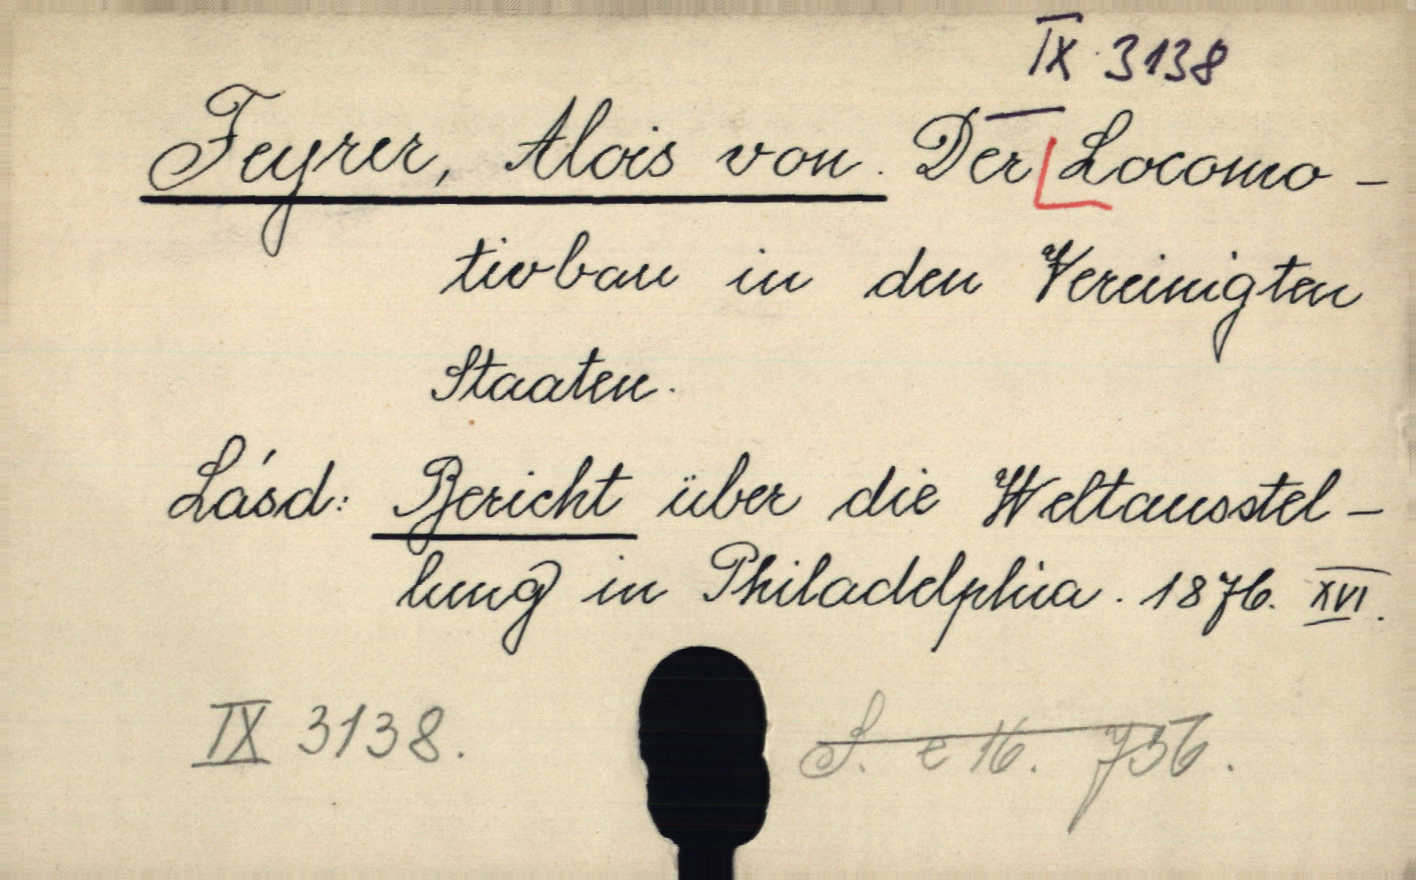 IX 3138
Feyrer, Alois von. Der Locomo-
tivbau in den Vereinigten
Staaten.
Lásd: Bericht über die Weltausstel-
lung in Philadelphia. 1876. XVI.
IX 3138.
S. e 16. 736.